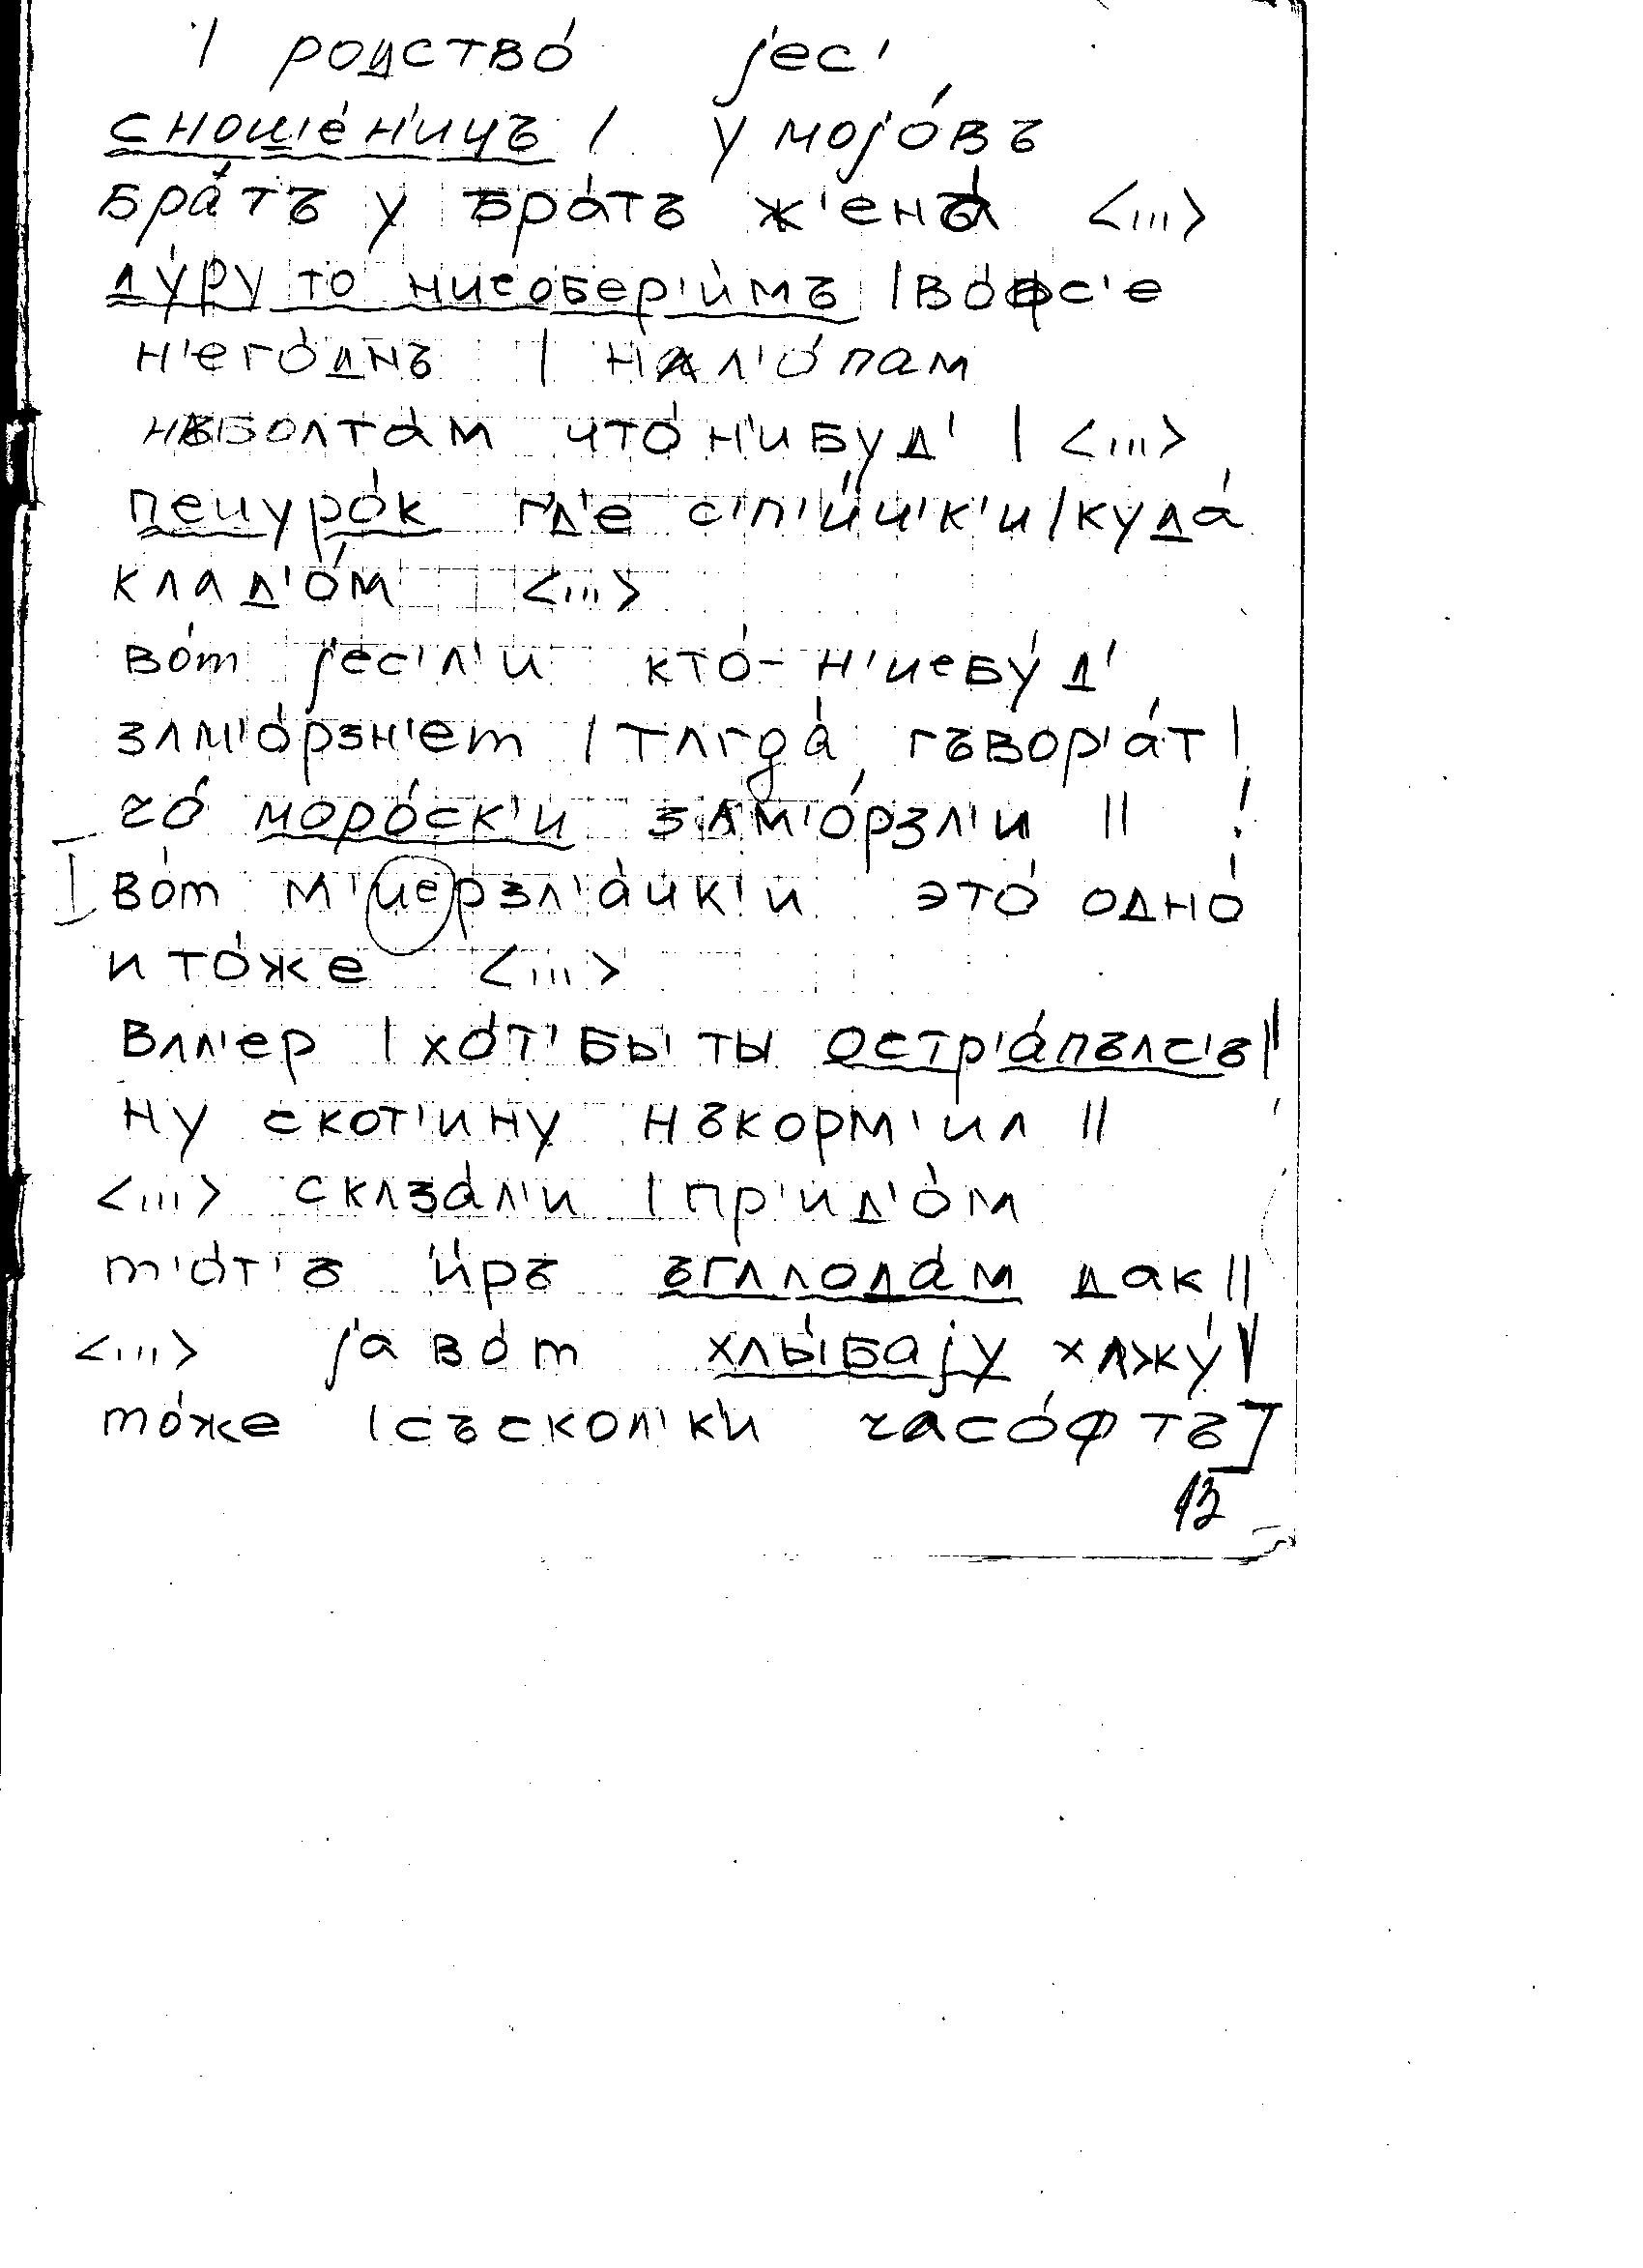 | родство́ jес'
сношéн'ицъ | у моjо́въ
бра́тъ у бра́тъ ж'ена́ <...>
ду́ру то нисобер'и́мъ | во́фс'е
н'его́днъ | нал'о́пам
нъболта́м что́н'ибуд' | <...>
пецуро́к г'д'е с'п'и́ч'к'и | куда́
клад'о́м <...>
во́т jе́с'л'и кто́-н'иебу́д'
зʌм'о́рзн'ет | тʌгда́ гъвор'а́т |
чо́ моро́ск'и зʌм'о́рзл'и || !
во́т м'иерзл'а́чк'и это́ одно́
и то́же <...>
Вʌл'ер | хо́т' бы ты остр'а́пълс'ъ ||
ну скот'ину нъкорм'ил ||
<...> скʌза́л'и | пр'ид'о́м
т'о́т'ъ и́ръ ъгʌлода́м дак ||
<...> jа во́т хлы́баjу хʌжу́ |
то́же | съскол'к'и часо́фтъ]
13